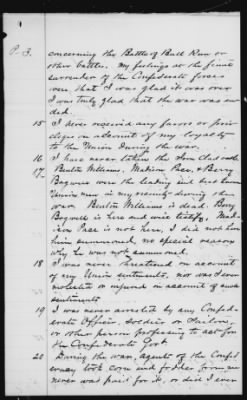 P. 3. concerning the Battles of Bull Run or
other battles. My feelings at the final
surrender of the Confederate forces
were that I was glad it was over
I was truly glad that the war was en
ded.
15 I never received any favors or priv
eleges on account of my loyalty
to the Union During the war.
16 I have never taken the Iron Clad oath
17. Benton Williams, Madison Pace, & Berry
Bagwell were the leading and best known
Union men in my vicinity during the
war. Benton Williams is dead. Berry
Bagwell is here and will testify. Mad-
ison Pace is not here, I did not have
him summoned, no special reason
why he was not summoned.
18 I was never threatened on account
of my Union sentiments, nor was I ever
molested or injured on account of such
sentiments
19 I was never arrested by any Confed-
erate Officer, soldier or
or other person professing to act for
the Confederate Govt.
20 During the war, agents of the Confed
eracy took corn and fodder from me
never was paid for it, or did I ever